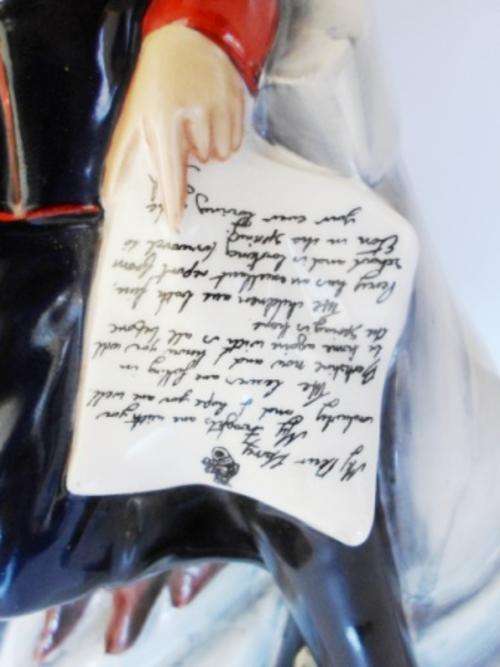 My Dear Harry
My Thoughts are with you
and I hope you are well
The leaves are falling in
Berkshire now and you will
be home again with us all before
the Spring is here
The children are both fine,
Percy has an excellent report from
school and is looking forward to
Eton in the Spring
your ever loving wife